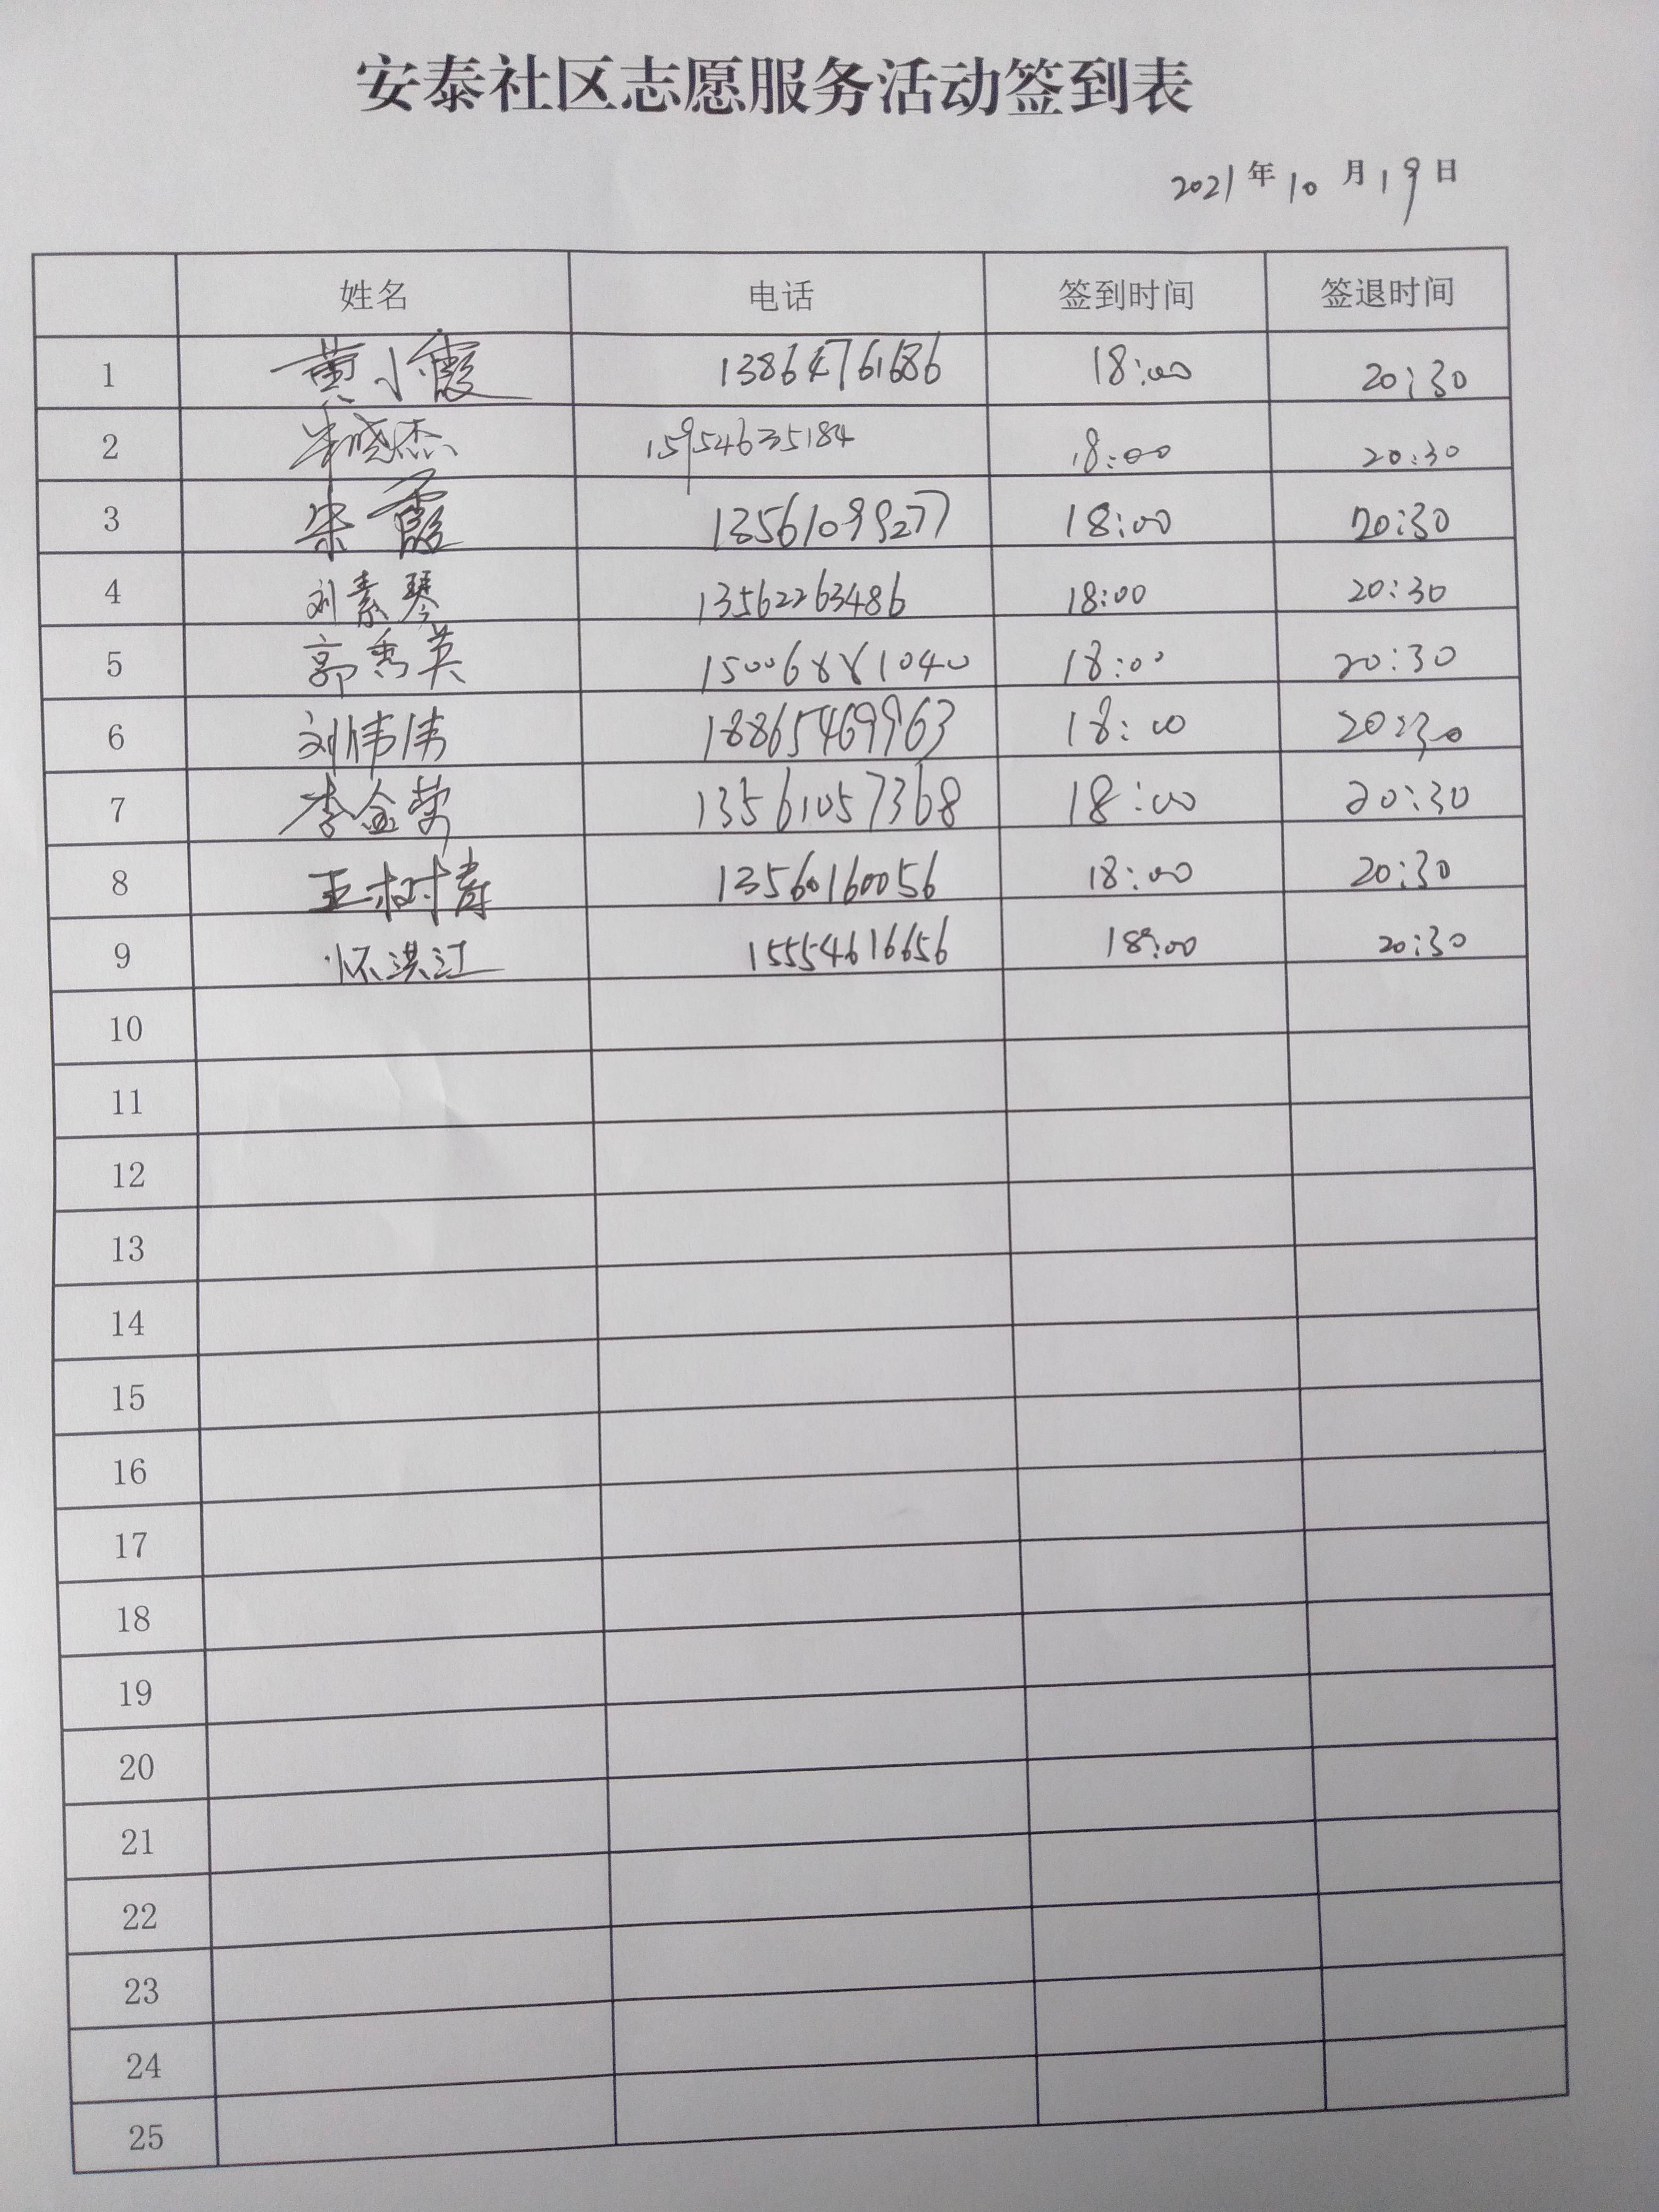 安泰社区志愿服务活动签到表
2021年10月19日
姓名 电话 签到时间 签退时间
1 黄小霞 13864761686 18:00 20:30
2 晓杰 15954635184 18:00 20:30
3 宋霞 13561099277 18:00 20:30
4 刘素琴 13562263486 18:00 20:30
5 郭秀英 15006881040 18:00 20:30
6 刘伟伟 18865469963 18:00 20:30
7 李金荣 13561057368 18:00 20:30
8 王树寿 13560160056 18:00 20:30
9 怀洪江 15554616656 18:00 20:30
10
11
12
13
14
15
16
17
18
19
20
21
22
23
24
25